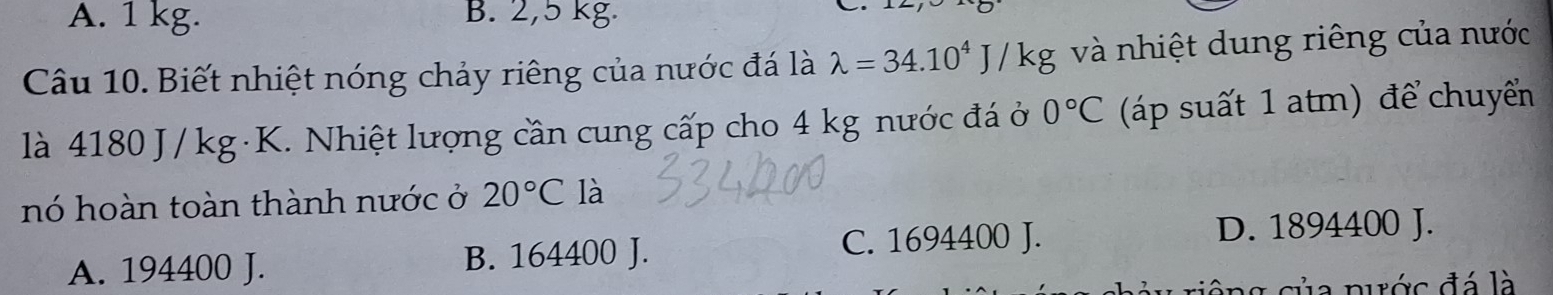 A. 1 kg.
B. 2,5 kg.
Câu 10. Biết nhiệt nóng chảy riêng của nước đá là λ = 34.10⁴ J / kg và nhiệt dung riêng của nước
là 4180 J / kg·K. Nhiệt lượng cần cung cấp cho 4 kg nước đá ở 0°C (áp suất 1 atm) để chuyển
nó hoàn toàn thành nước ở 20°C là
A. 194400 J.
B. 164400 J.
C. 1694400 J.
D. 1894400 J.
chảy riêng của nước đá là